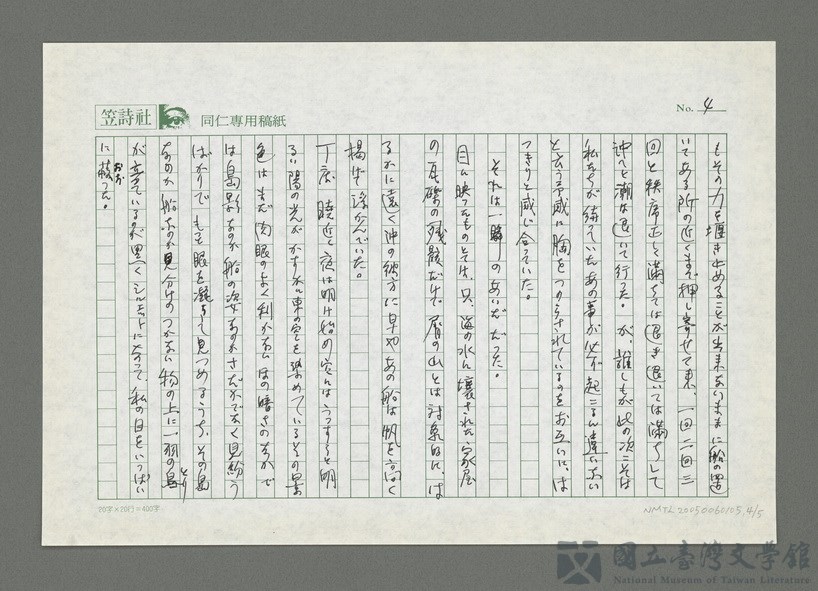 笠詩社
同仁専用稿紙
No. 4
もその力を堰き止めることが出来ないままに船の置
いてある所の近くまで押し寄せて来、一回二回三
回と秩序正しく満ちては退き退いては満ちして
沖へと潮は退いて行った。が、誰しもが此の次こそは
私たちが待っていたあの事が必ず起こるに違いない
と言う予感に胸をつまらされているのをお互いに、は
っきりと感じ合っていた。
それは一瞬のあいだだった。
目に映ったものとては、只、海の水に壊された家屋
の瓦礫の残骸だけで、屑の山とは対象的に、は
るかに遠く沖の彼方に早やあの船は帆を高く
揚げて浮かんでいた。
丁度、暁近く夜は明け始め空にはうっすらと明
るい陽の光がかすかに東の空を染めているその景
色はまだ肉眼のよく利かないほの暗さのなかで
は島影なのか船の姿なのかさだかでなく見紛う
ばかりで、もも眼を凝らして見つめるうち、その島
なのか船なのか見分けのつかない物の上に一羽の鳥
とり
が立っているのが黒くシルエットになって、私の目をいっぱい
に被った。
おお
20字×20行=400字
NMTL20050060105,4/5
國立臺灣文學館
National Museum of Taiwan Literature